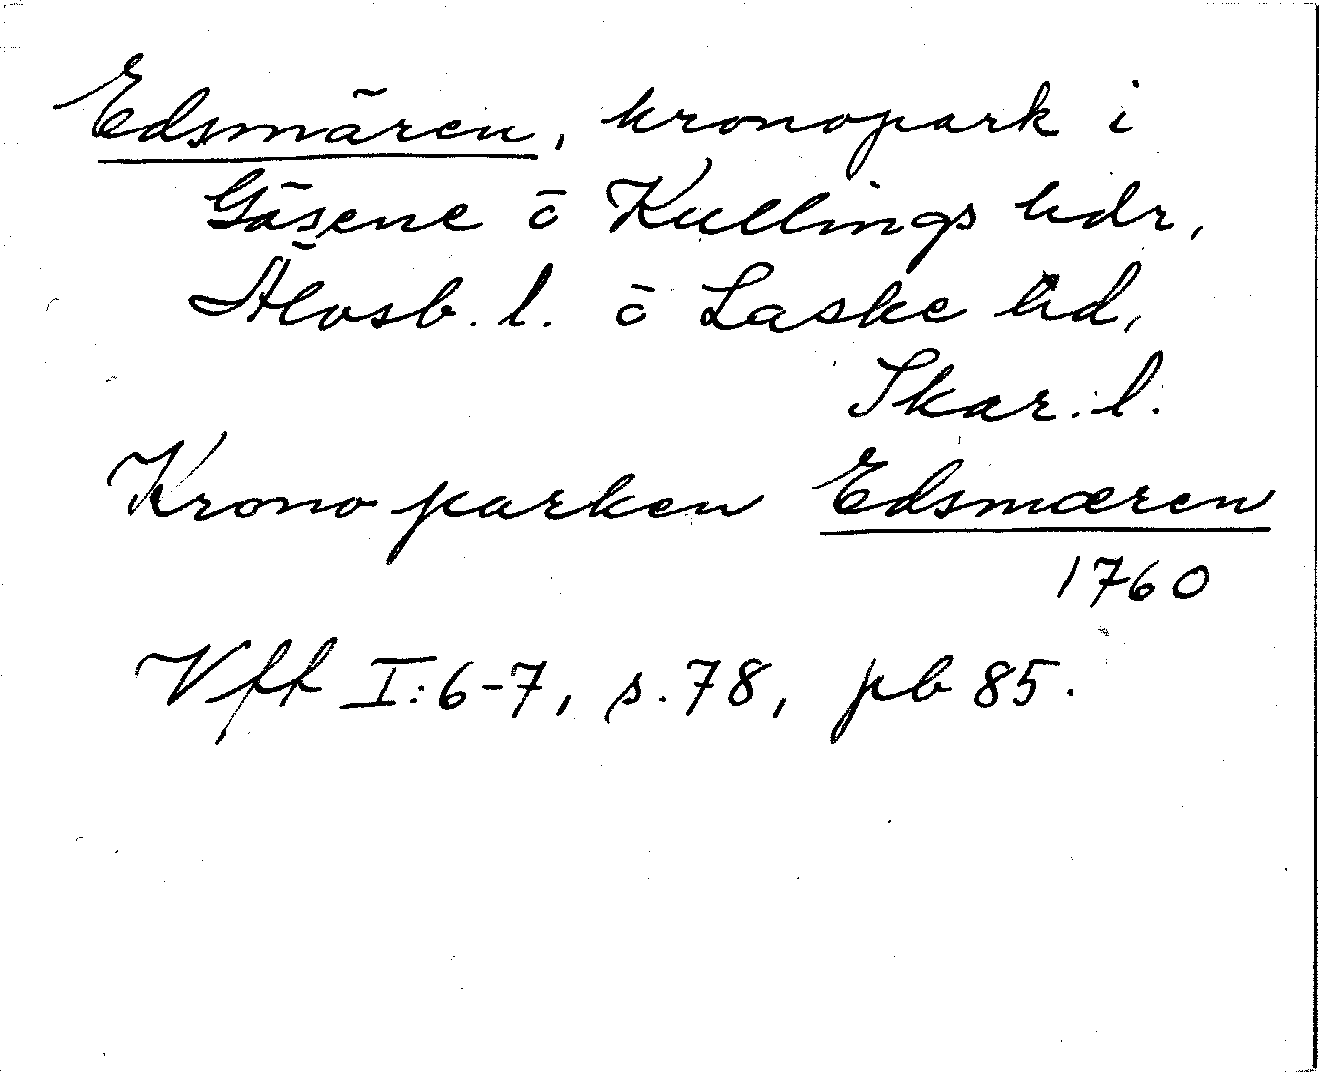 Edsmären, kronopark i
Gäsene o Kullings hdr,
Älvsb. l. o Laske hd,
Skar. l.
Kronoparken Edsmæren
1760
Vft I:6-7, s. 78, pb 85.